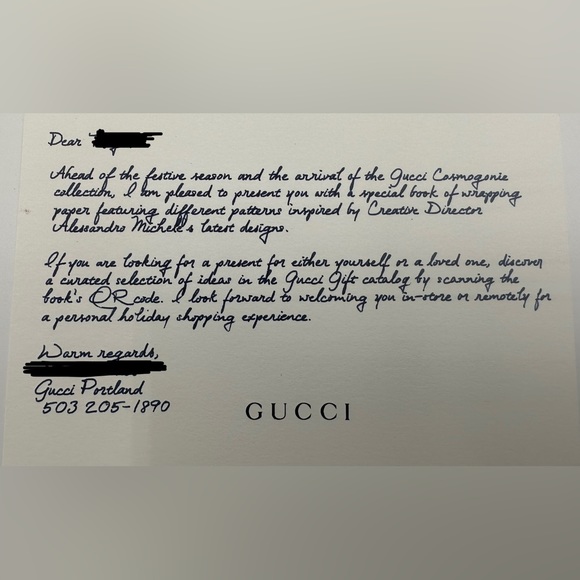 Dear
Ahead of the festive season and the arrival of the Gucci Cosmogonie
collection, I am pleased to present you with a special book of wrapping
paper featuring different patterns inspired by Creative Director
Alessandro Michele's latest designs.
If you are looking for a present for either yourself or a loved one, discover
a curated selection of ideas in the Gucci Gift catalog by scanning the
book's QR code. I look forward to welcoming you in-store or remotely for
a personal holiday shopping experience.
Warm regards,
Gucci Portland
503 205-1890
GUCCI